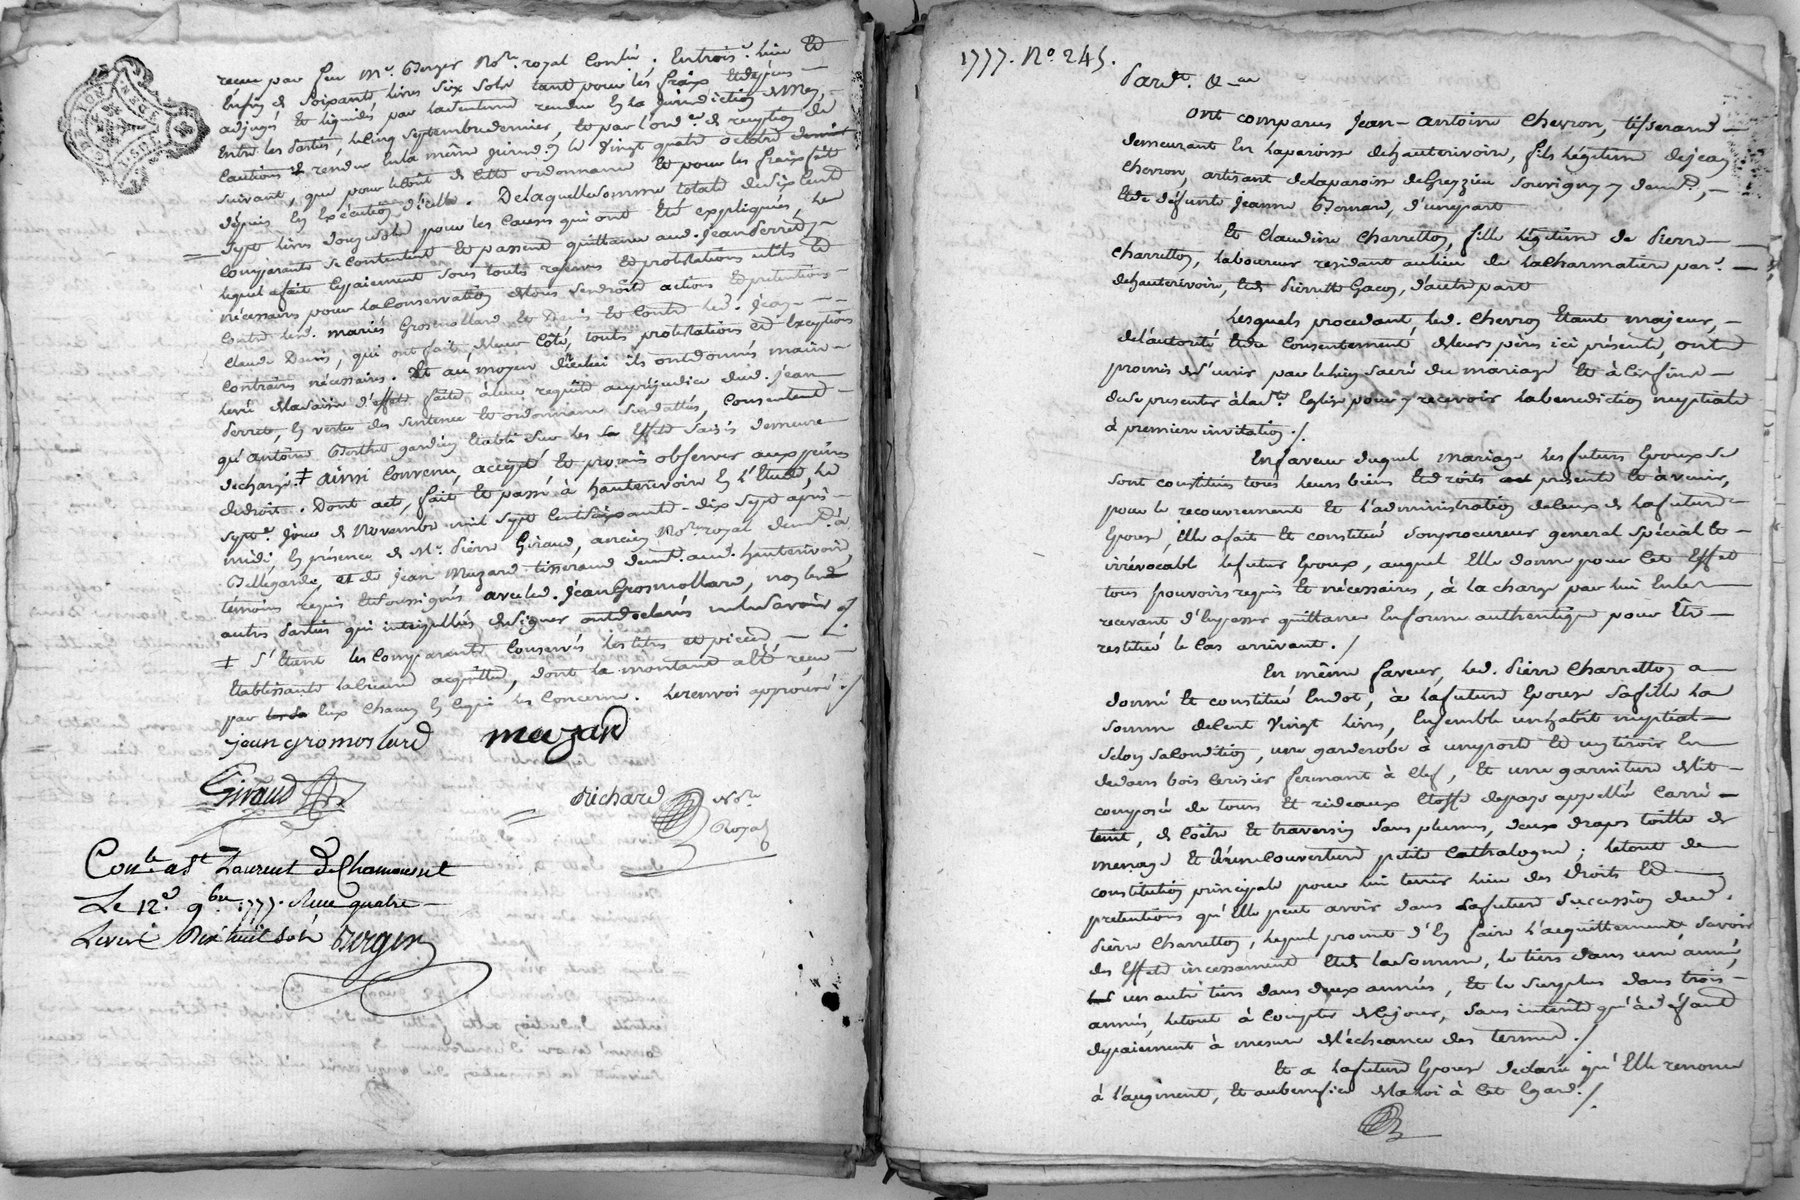 reçue par feu Me. Berger Nore. royal Confin. Entroise. lieu Et
Enfin de soixante livres six sols tant pour les fraix Et dépens
adjugés Et liquidés par la sentence rendue En la Jurisdiction de Mey,
Entre les parties, le cinq septembre dernier, Et par l'ordce. de reception de
Cautions Et rendue En la même Jurisdon le vingt quatre octobre dernier
suivant, que pour le Coût de cette ordonnance Et pour les fraix fait
depuis En Exécution d'icelle. De laquelle somme totale de six Cent
sept livres douze sols pour les Causes qui ont Eté expliquées les
Comparants se Contentent Et passent quittance aud. Jean Perret,
lequel a fait Ce paiement sous toutes reserves Et protestations utiles Et
nécessaires pour la Conservation de tous ses droits actions Et prétentions
Contre lesd. mariés Grosmollard Et Denis Et Contre led. Jean
Claude Denis, qui ont fait, de leur Côté, toutes protestations Et Exceptions
Contraires nécessaires. Et au moyen d'icelui ils ont donnés main
levée de la saisie d'effets faite à leur requête au préjudice dud. Jean
Perret, En vertu des sentence Et ordonnance susdattées, Consentent
qu'antoine Berthet gardien Etabli sur les Effets saisis demeure
dechargé. ‡ ainsi Convenu, accepté Et promis observer aux peines
de droit. Dont acte, fait Et passé à hauterivoire En l'Etude, le
septe. jour de Novembre mil sept Cent soixante-dix sept après
midi, En présence de Me. Pierre Giraud, ancien Nore. royal demt. à
Bellegarde, et de Jean Muzard tisserand demt. aud. hauterivoire
témoins requis Et soussignés avec led. Jean Grosmollard, non les
autres parties qui interpellées de signer ont déclaré ne le savoir ./.
‡ s'étant les Comparants Conservés les titres et pieces
Etablissants la Créance acquittée, dont la montant a Eté reçu
par Eux Chacun En ce qui les Concerne. Le renvoi approuvé ./
jean gromoslard muzard
Giraud
Richard Nore
Royal
Conle. a St Laurent de Chamousset
Le 12e. 9bre 1777. Reçu quatre
Livres Dix huit sols Berger
1777. No. 245.
Pardt. &a
Ont comparus Jean-Antoine Chevron, tisserand
demeurant En la paroisse de hauterivoire, fils légitime de jean
Chevron, artisant de la paroisse de Grezieu souvigny y demt.,
Et de défunte Jeanne Bonnard, d'une part
Et Claudine Charretton, fille légitime de Pierre
Charretton, laboureur residant au lieu de la Charmatiere par.
de hauterivoire, Et de Pierrette Gacon, d'autre part
Lesquels procedant, led. Chevron Etant majeur,
de l'autorité Et du Consentement de leurs pères ici présents, ont
promis de s'unir par le lien sacré du mariage Et à Cet fine
de se presenter à la Ste. Eglise pour y recevoir la benediction nuptiale
à premiere invitation ./.
En faveur duquel mariage les futurs Epoux se
sont constitués tous leurs biens Et droits présents Et à venir,
pour le recouvrement Et l'administration de Ceux de la future
Epouse, Elle a fait Et constitué son procureur general spécial Et
irrévocable le futur Epoux, auquel Elle donne pour Cet Effet
tous pouvoirs requis Et nécessaires, à la charge par lui En les
recevant d'En passer quittance En forme authentique pour Etre
restitué le cas arrivant ./
En même faveur, led. Pierre Charretton a
donné Et constitué En dot, à la future Epouse sa fille la
somme de Cent vingt livres, Ensemble un habit nuptial
selon sa Condition, une garderobe à une porte Et un tiroir En
dedans bois Cerisier fermant à Clef, Et une garniture de lit
composée de tours Et rideaux Etoffe de pays appellée Carré
teint, de Coitre Et traversin sans plumes, deux draps toille de
menage Et d'une Couverture petite Cathalogne; le tout de
constitution principale pour lui tenir lieu des droits Et
pretentions qu'Elle peut avoir dans la future succession dud.
Pierre Charretton, lequel promet d'En faire l'acquittement, savoir
des Effets incessamment Et de la somme, le tiers dans une année,
un autre tiers dans deux années, Et le surplus dans trois
années, le tout à Compter de Ce jour, sans interêts qu'à défaut
de paiement à mesure de l'échéance des termes ./
Et a la future Epouse declaré qu'Elle renonce
à l'augment, Et au benefice de la loi à Cet Egard ./.